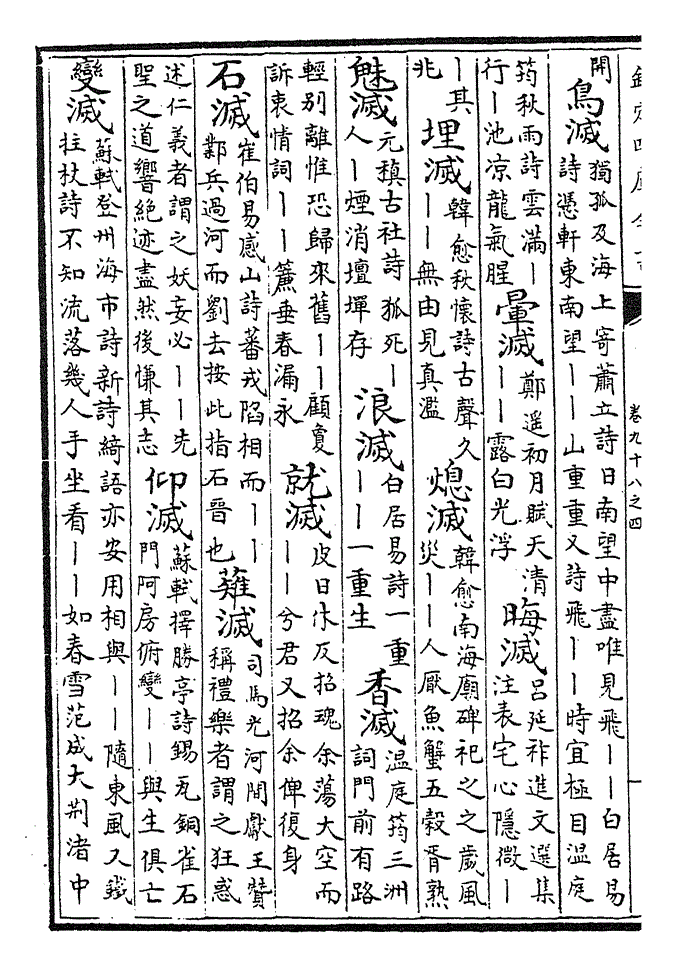 欽定四庫全書
卷九十八之四
開
鳥滅
獨孤及海上寄蕭立詩日南望中盡唯見飛丨丨白居易
詩憑軒東南望丨丨山重重又詩飛丨丨時宜極目溫庭
筠秋雨詩雲滿丨
行丨池凉龍氣腥
暈滅
鄭遥初月賦天清
丨丨露白光浮
晦滅
吕延祚進文選集
注表宅心隱微丨
丨其
兆
埋滅
韓愈秋懷詩古聲久
丨丨無由見真濫
熄滅
韓愈南海廟碑祀之之歲風
災丨丨人厭魚蟹五穀胥熟
魅滅
元稹古社詩狐死丨
人丨煙消壇墠存
浪滅
白居易詩一重
丨丨一重生
香滅
温庭筠三洲
詞門前有路
輕别離惟恐歸來舊丨丨顧敻
訴衷情詞丨丨簾垂春漏永
就滅
皮日休反招魂余蕩大空而
丨丨兮君又招余俾復身
石滅
崔伯易感山詩蕃戎陷相而丨丨
鄴兵過河而劉去按此指石晉也
薙滅
司馬光河間獻王贊
稱禮樂者謂之狂惑
述仁義者謂之妖妄必丨丨先
聖之道響絶迹盡然後慊其志
仰滅
蘇軾擇勝亭詩錫瓦銅雀石
門阿房俯變丨丨與生俱亡
變滅
蘇軾登州海市詩新詩綺語亦安用相與丨丨隨東風又鐵
拄杖詩不知流落幾人手坐看丨丨如春雪范成大荆渚中